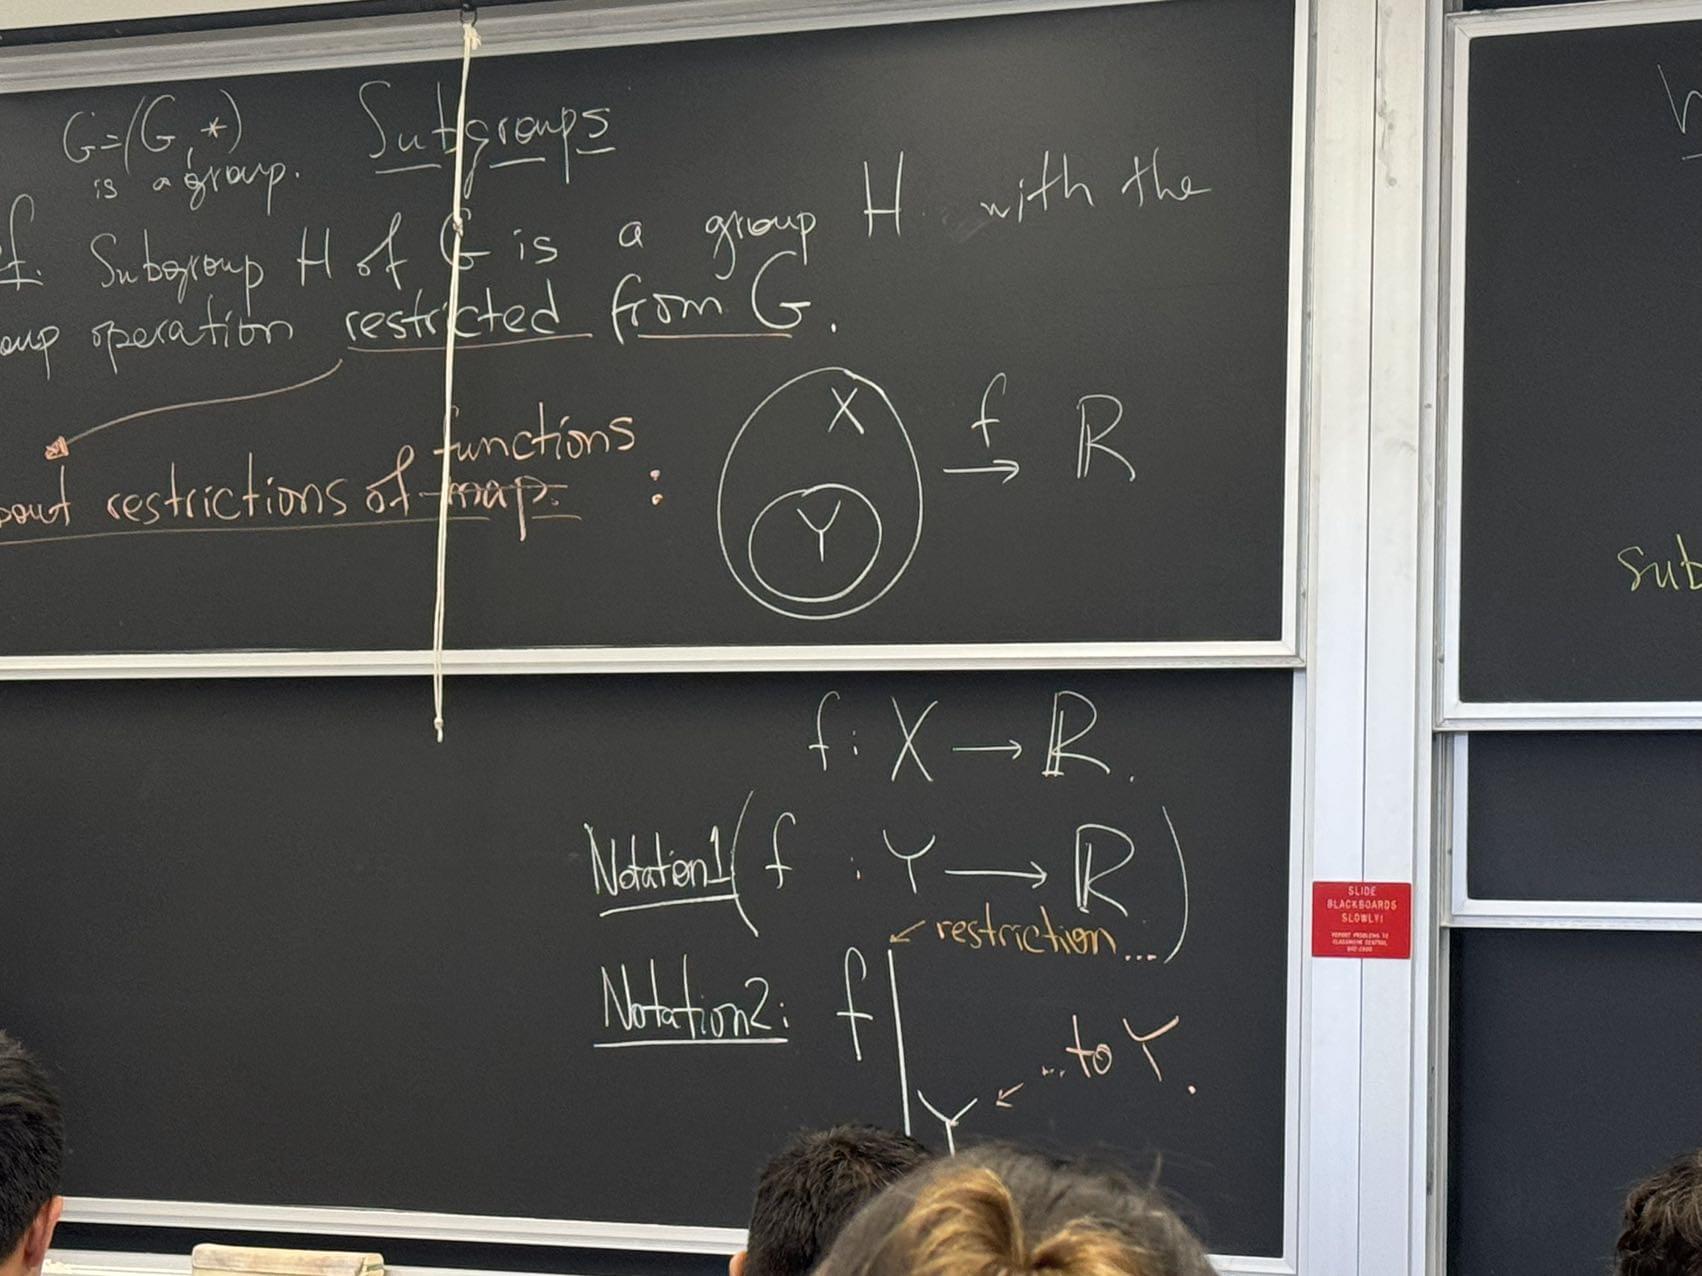 G=(G,*)
is a group.
Subgroups
f. Subgroup H of G is a group H with the
oup operation restricted from G.
functions
bout restrictions of map. :
X
Y
f → ℝ
f: X → ℝ.
Notation1 ( f : Y → ℝ )
← restriction...
Notation2: f|Y
...to Y.
sub
SLIDE
BLACKBOARDS
SLOWLY!
REPORT PROBLEMS TO
CLASSROOM CENTRAL